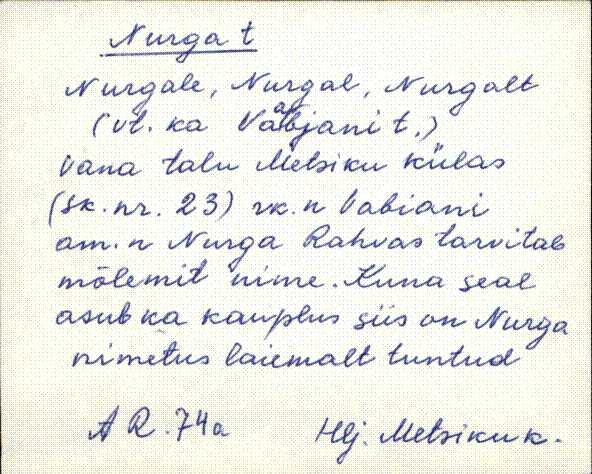 Nurga t
Nurgale, Nurgal, Nurgalt
(vt. ka Vaabjani t.)
Vana talu Metsiku külas
(sk. nr. 23) rk. n Vabiani
am. n Nurga Rahvas tarvitab
mõlemit nime. Kuna seal
asub ka kauplus siis on Nurga
nimetus laiemalt tuntud
A R. 74a Hlj. Metsiku k.